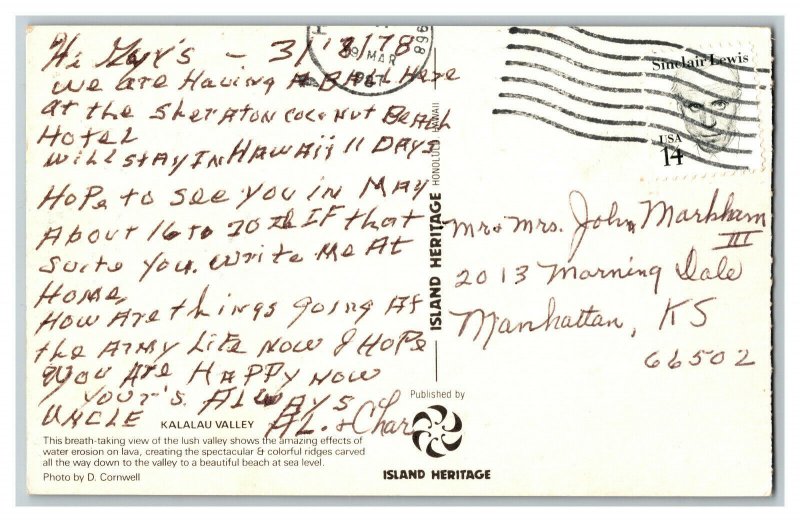 Hi Guy's - 3/18/78
We are Having A BAll Here
At the SherAton Coconut BeAch
Hotel
Will STAY IN HAWAii 11 DAYS
Hope to see you in MAy
About 16 to 20th IF that
suits you. Write Me At
Home,
How Are things going At
the Army Life Now I Hope
You Are HAPPY Now
Your's AlwAYS
UNCLE AL. & Char
KALALAU VALLEY
This breath-taking view of the lush valley shows the amazing effects of
water erosion on lava, creating the spectacular & colorful ridges carved
all the way down to the valley to a beautiful beach at sea level.
Photo by D. Cornwell
ISLAND HERITAGE HONOLULU HAWAII
Published by
ISLAND HERITAGE
MAR
968
Sinclair Lewis
USA
14
Mr & Mrs. John Markham
III
2013 Morning Dale
Manhattan, KS
66502